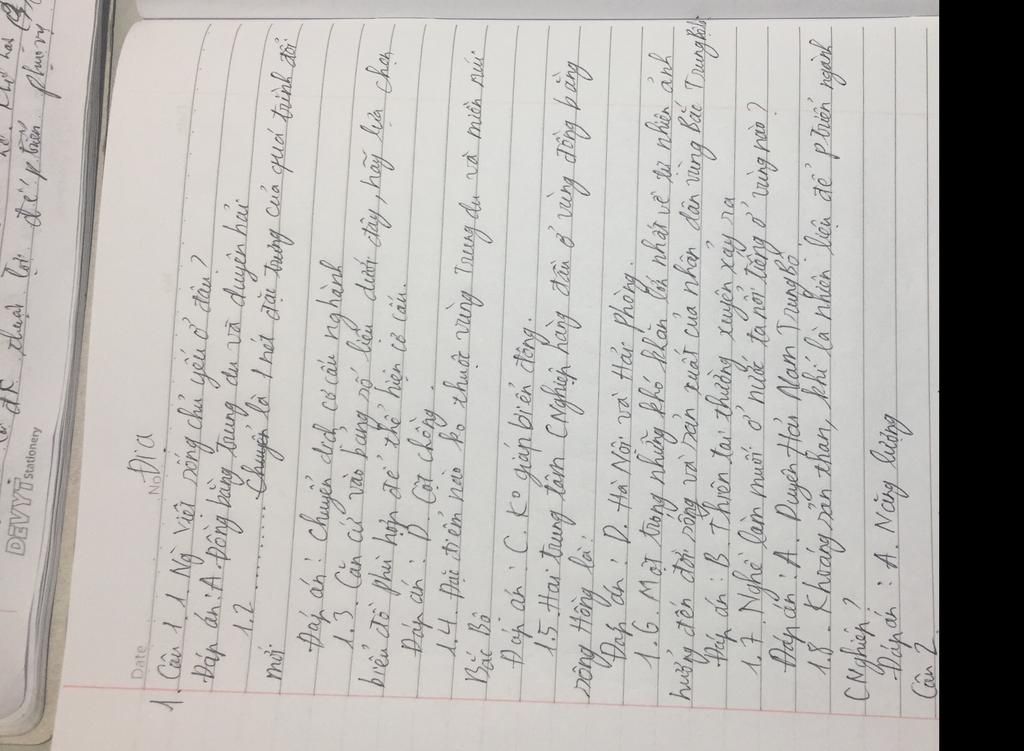 lại để ptriển phụ vụ
DEVYT Stationery
Date No
Địa
1. Câu 1. 1. Ng Việt sống chủ yếu ở đâu?
Đáp án: A. Đồng bằng trung du và duyên hải
1.2 .......... Chuyển là 1 nét đặc trưng của quá trình đổi
mới
Đáp án: Chuyển dịch cơ cấu nghành
1.3. Căn cứ vào bảng số liệu dưới đây, hãy lựa chọn
biểu đồ phù hợp để thể hiện cơ cấu.
Đáp án: D. Cột chồng
1.4. Đặc điểm nào ko thuộc vùng Trung du và miền núi
Bắc Bộ
Đáp án: C. Ko giáp biển đông.
1.5. Hai trung tâm CNghiệp hàng đầu ở vùng đồng bằng
sông Hồng là:
Đáp án: D. Hà Nội và Hải Phòng.
1.6. Một trong những khó khăn lớn nhất về tự nhiên ảnh
hưởng đến đời sống và sản xuất của nhân dân vùng Bắc Trung Bộ:
Đáp án: B. Thiên tai thường xuyên xảy ra
1.7. Nghề làm muối ở nước ta nổi tiếng ở vùng nào?
Đáp án: A. Duyên Hải Nam Trung Bộ
1.8. Khoáng sản than, khí là nhiên liệu để ptriển ngành
CNghiệp?
Đáp án: A. Năng lượng
Câu 2